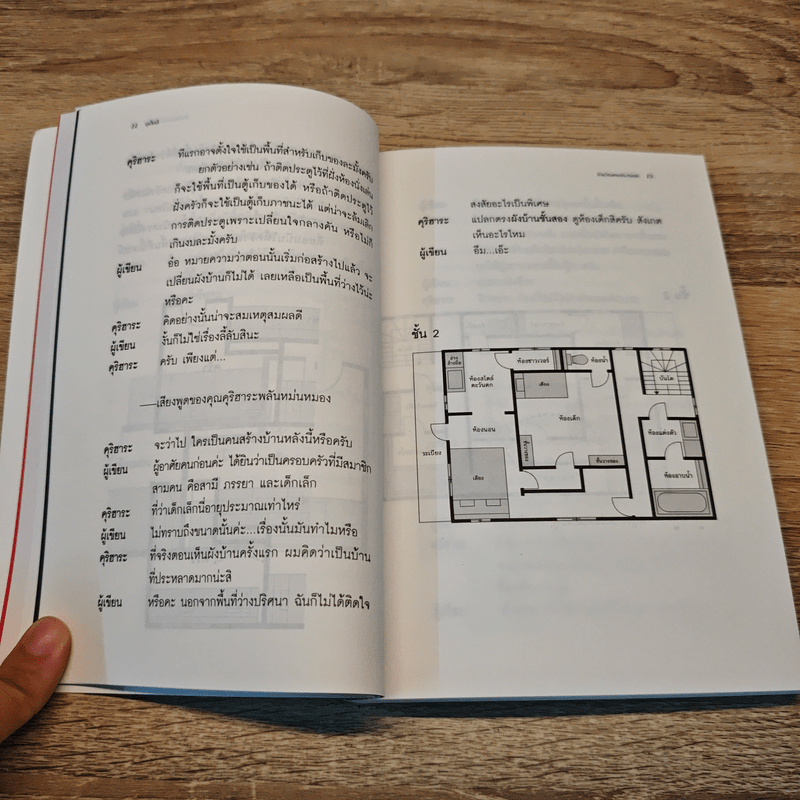 22
คุริฮาระ ทีแรกอาจตั้งใจใช้เป็นพื้นที่สำหรับเก็บของละมั้งครับ
ยกตัวอย่างเช่น ถ้าติดประตูไว้ที่ฝั่งห้องนั่งเล่น
ก็จะใช้พื้นที่เป็นตู้เก็บของได้ หรือถ้าติดประตูไว้
ฝั่งครัวก็จะใช้เป็นตู้เก็บภาชนะได้ แต่น่าจะล้มเลิก
การติดประตูเพราะเปลี่ยนใจกลางคัน หรือไม่ก็
เกินงบละมั้งครับ
ผู้เขียน อ๋อ หมายความว่าตอนนั้นเริ่มก่อสร้างไปแล้ว จะ
เปลี่ยนผังบ้านก็ไม่ได้ เลยเหลือเป็นพื้นที่ว่างไว้น่ะ
หรือคะ
คุริฮาระ คิดอย่างนั้นน่าจะสมเหตุสมผลดี
ผู้เขียน งั้นก็ไม่ใช่เรื่องลี้ลับสินะ
คุริฮาระ ครับ เพียงแต่...
—เสียงพูดของคุณคุริฮาระพลันหม่นหมอง
คุริฮาระ จะว่าไป ใครเป็นคนสร้างบ้านหลังนี้หรือครับ
ผู้เขียน ผู้อาศัยคนก่อนค่ะ ได้ยินว่าเป็นครอบครัวที่มีสมาชิก
สามคน คือสามี ภรรยา และเด็กเล็ก
คุริฮาระ ที่ว่าเด็กเล็กนี่อายุประมาณเท่าไหร่
ผู้เขียน ไม่ทราบถึงขนาดนั้นค่ะ...เรื่องนั้นมันทำไมหรือ
คุริฮาระ ที่จริงตอนเห็นผังบ้านครั้งแรก ผมคิดว่าเป็นบ้าน
ที่ประหลาดมากน่ะสิ
ผู้เขียน หรือคะ นอกจากพื้นที่ว่างปริศนา ฉันก็ไม่ได้ติดใจ
23
สงสัยอะไรเป็นพิเศษ
คุริฮาระ แปลกตรงผังบ้านชั้นสอง ดูห้องเด็กสิครับ สังเกต
เห็นอะไรไหม
ผู้เขียน อืม...เอ๊ะ
ชั้น 2
อ่างล้างมือ
ห้องชาวเวอร์
ห้องน้ำ
ห้องสไตล์ตะวันตก
เตียง
บันได
ห้องเด็ก
ห้องนอน
ห้องแต่งตัว
ระเบียง
ชั้นวางของ
ชั้นวางของ
เตียง
ห้องอาบน้ำ